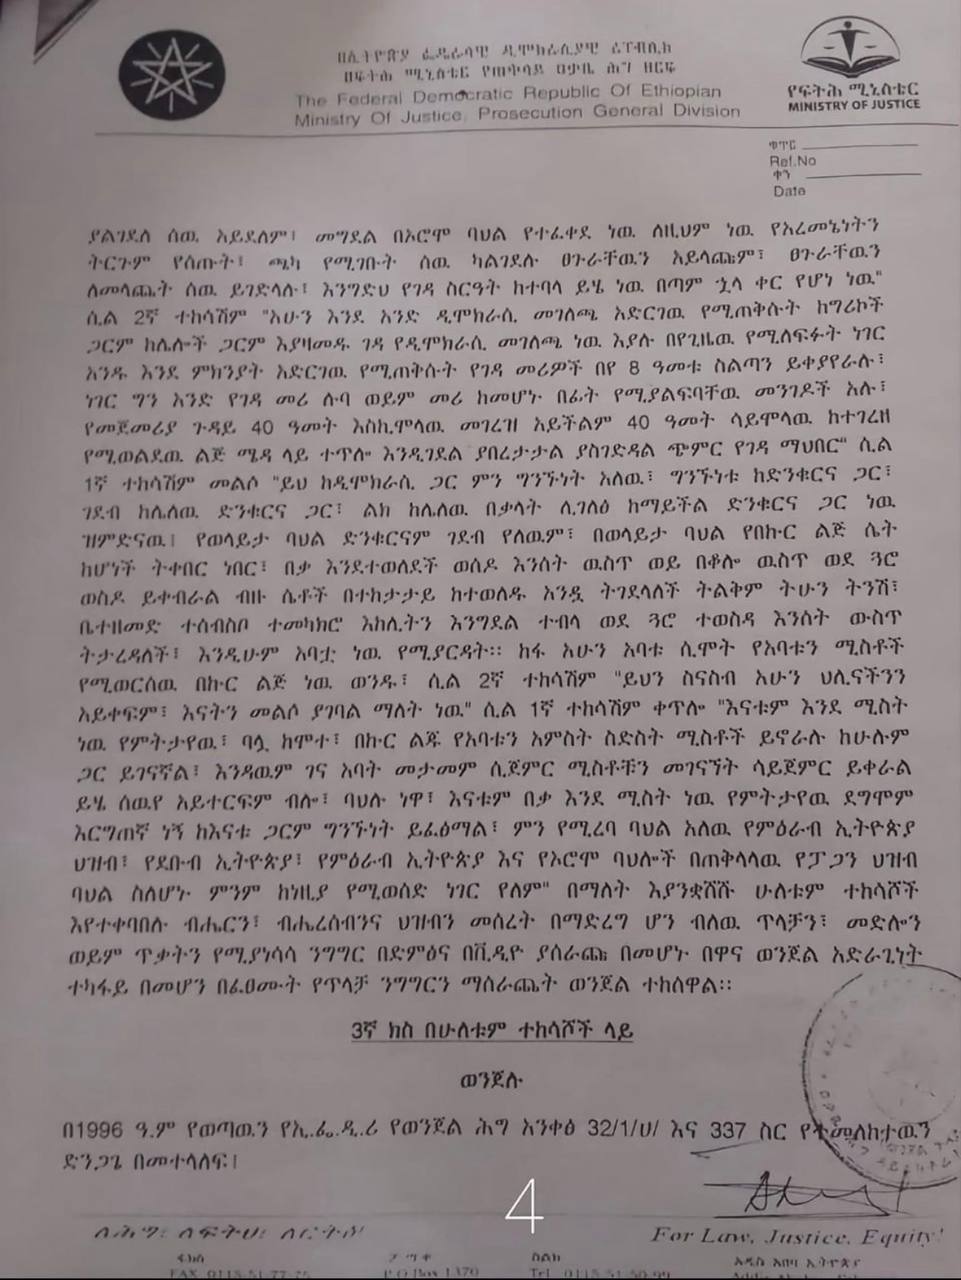 በኢትዮጵያ ፌዴራላዊ ዲሞክራሲያዊ ሪፐብሊክ
በፍትሕ ሚኒስቴር የጠቅላይ ዐቃቤ ሕግ ዘርፍ
The Federal Democratic Republic Of Ethiopian
Ministry Of Justice, Prosecution General Division
የፍትሕ ሚኒስቴር
MINISTRY OF JUSTICE
ቁጥር
Ref.No
ቀን
Date
ያልገደለ ሰዉ አይደለም፣ መግደል በኦሮሞ ባህል የተፈቀደ ነዉ ለዚህም ነዉ የአረመኔነትን
ትርጉም የሰጡት፣ ጫካ የሚገቡት ሰዉ ካልገደሉ ፀጉራቸዉን አይላጩም፣ ፀጉራቸዉን
ለመላጨት ሰዉ ይገድላሉ፣ እንግድህ የገዳ ስርዓት ከተባላ ይሄ ነዉ በጣም ኋላ ቀር የሆነ ነዉ"
ሲል 2ኛ ተከሳሽም "አሁን እንደ አንድ ዲሞክራሲ መገለጫ አድርገዉ የሚጠቅሱት ከግሪኮች
ጋርም ከሌሎች ጋርም እያዛመዱ ገዳ የዲሞክራሲ መገለጫ ነዉ እያሉ በየጊዜዉ የሚለፍፉት ነገር
አንዱ እንደ ምክንያት አድርገዉ የሚጠቅሱት የገዳ መሪዎች በየ 8 ዓመቱ ስልጣን ይቀያየራሉ፣
ነገር ግን አንድ የገዳ መሪ ሉባ ወይም መሪ ከመሆኑ በፊት የሚያልፍባቸዉ መንገዶች አሉ፣
የመጀመሪያ ጉዳይ 40 ዓመት እስኪሞላዉ መገረዝ አይችልም 40 ዓመት ሳይሞላዉ ከተገረዘ
የሚወልደዉ ልጅ ሜዳ ላይ ተጥሎ እንዲገደል ያበረታታል ያስገድዳል ጭምር የገዳ ማህበር" ሲል
1ኛ ተከሳሽም መልሶ "ይህ ከዲሞክራሲ ጋር ምን ግንኙነት አለዉ፣ ግንኙነቱ ከድንቁርና ጋር፣
ገደብ ከሌለዉ ድንቁርና ጋር፣ ልክ ከሌለዉ በቃላት ሊገለፅ ከማይችል ድንቁርና ጋር ነዉ
ዝምድናዉ፣ የወላይታ ባህል ድንቁርናም ገደብ የለዉም፣ በወላይታ ባህል የበኩር ልጅ ሴት
ከሆነች ትቀበር ነበር፣ በቃ እንደተወለደች ወስዶ እንሰት ዉስጥ ወይ በቆሎ ዉስጥ ወደ ጓሮ
ወስዶ ይቀብራል ብዙ ሴቶች በተከታታይ ከተወለዱ አንዷ ትገደላለች ትልቅም ትሁን ትንሽ፣
ቤተዘመድ ተሰብስቦ ተመካክሮ እከሊትን እንግደል ተብላ ወደ ጓሮ ተወስዳ እንሰት ውስጥ
ትታረዳለች፣ እንዲሁም አባቷ ነዉ የሚያርዳት። ከፋ አሁን አባቱ ሲሞት የአባቱን ሚስቶች
የሚወርሰዉ በኩር ልጅ ነዉ ወንዱ፣ ሲል 2ኛ ተከሳሽም "ይህን ስናስብ አሁን ህሊናችንን
አይቀፍም፣ እናትን መልሶ ያገባል ማለት ነዉ" ሲል 1ኛ ተከሳሽም ቀጥሎ "እናቱም እንደ ሚስት
ነዉ የምትታየዉ፣ ባሏ ከሞተ፣ በኩር ልጁ የአባቱን አምስት ስድስት ሚስቶች ይኖራሉ ከሁሉም
ጋር ይገናኛል፣ እንዳዉም ገና አባት መታመም ሲጀምር ሚስቶቹን መገናኘት ሳይጀምር ይቀራል
ይሄ ሰዉየ አይተርፍም ብሎ፣ ባህሉ ነዋ፣ እናቱም በቃ እንደ ሚስት ነዉ የምትታየዉ ደግሞም
እርግጠኛ ነኝ ከእናቱ ጋርም ግንኙነት ይፈፅማል፣ ምን የሚረባ ባህል አለዉ የምዕራብ ኢትዮጵያ
ህዝብ፣ የደቡብ ኢትዮጵያ፣ የምዕራብ ኢትዮጵያ እና የኦሮሞ ባህሎች በጠቅላላዉ የፓጋን ህዝብ
ባህል ስለሆኑ ምንም ከነዚያ የሚወሰድ ነገር የለም" በማለት እያንቋሸሹ ሁለቱም ተከሳሾች
እየተቀባበሉ ብሔርን፣ ብሔረሰብንና ህዝብን መሰረት በማድረግ ሆን ብለዉ ጥላቻን፣ መድሎን
ወይም ጥቃትን የሚያነሳሳ ንግግር በድምፅና በቪዲዮ ያሰራጩ በመሆኑ በዋና ወንጀል አድራጊነት
ተካፋይ በመሆን በፈፀሙት የጥላቻ ንግግርን ማሰራጨት ወንጀል ተከሰዋል።
3ኛ ክስ በሁለቱም ተከሳሾች ላይ
ወንጀሉ
በ1996 ዓ.ም የወጣዉን የኢ.ፌ.ዲ.ሪ የወንጀል ሕግ አንቀፅ 32/1/ሀ/ እና 337 ስር የተመለከተዉን
ድንጋጌ በመተላለፍ፣
4
ለሕግ፣ ለፍትህ፣ ለርትዕ!
For Law, Justice, Equity!
ፋክስ
FAX 0115-51-77-75
ፖ.ሣ.ቁ
P.O.Box 1370
ስልክ
Tel.
አዲስ አበባ ኢትዮጵያ